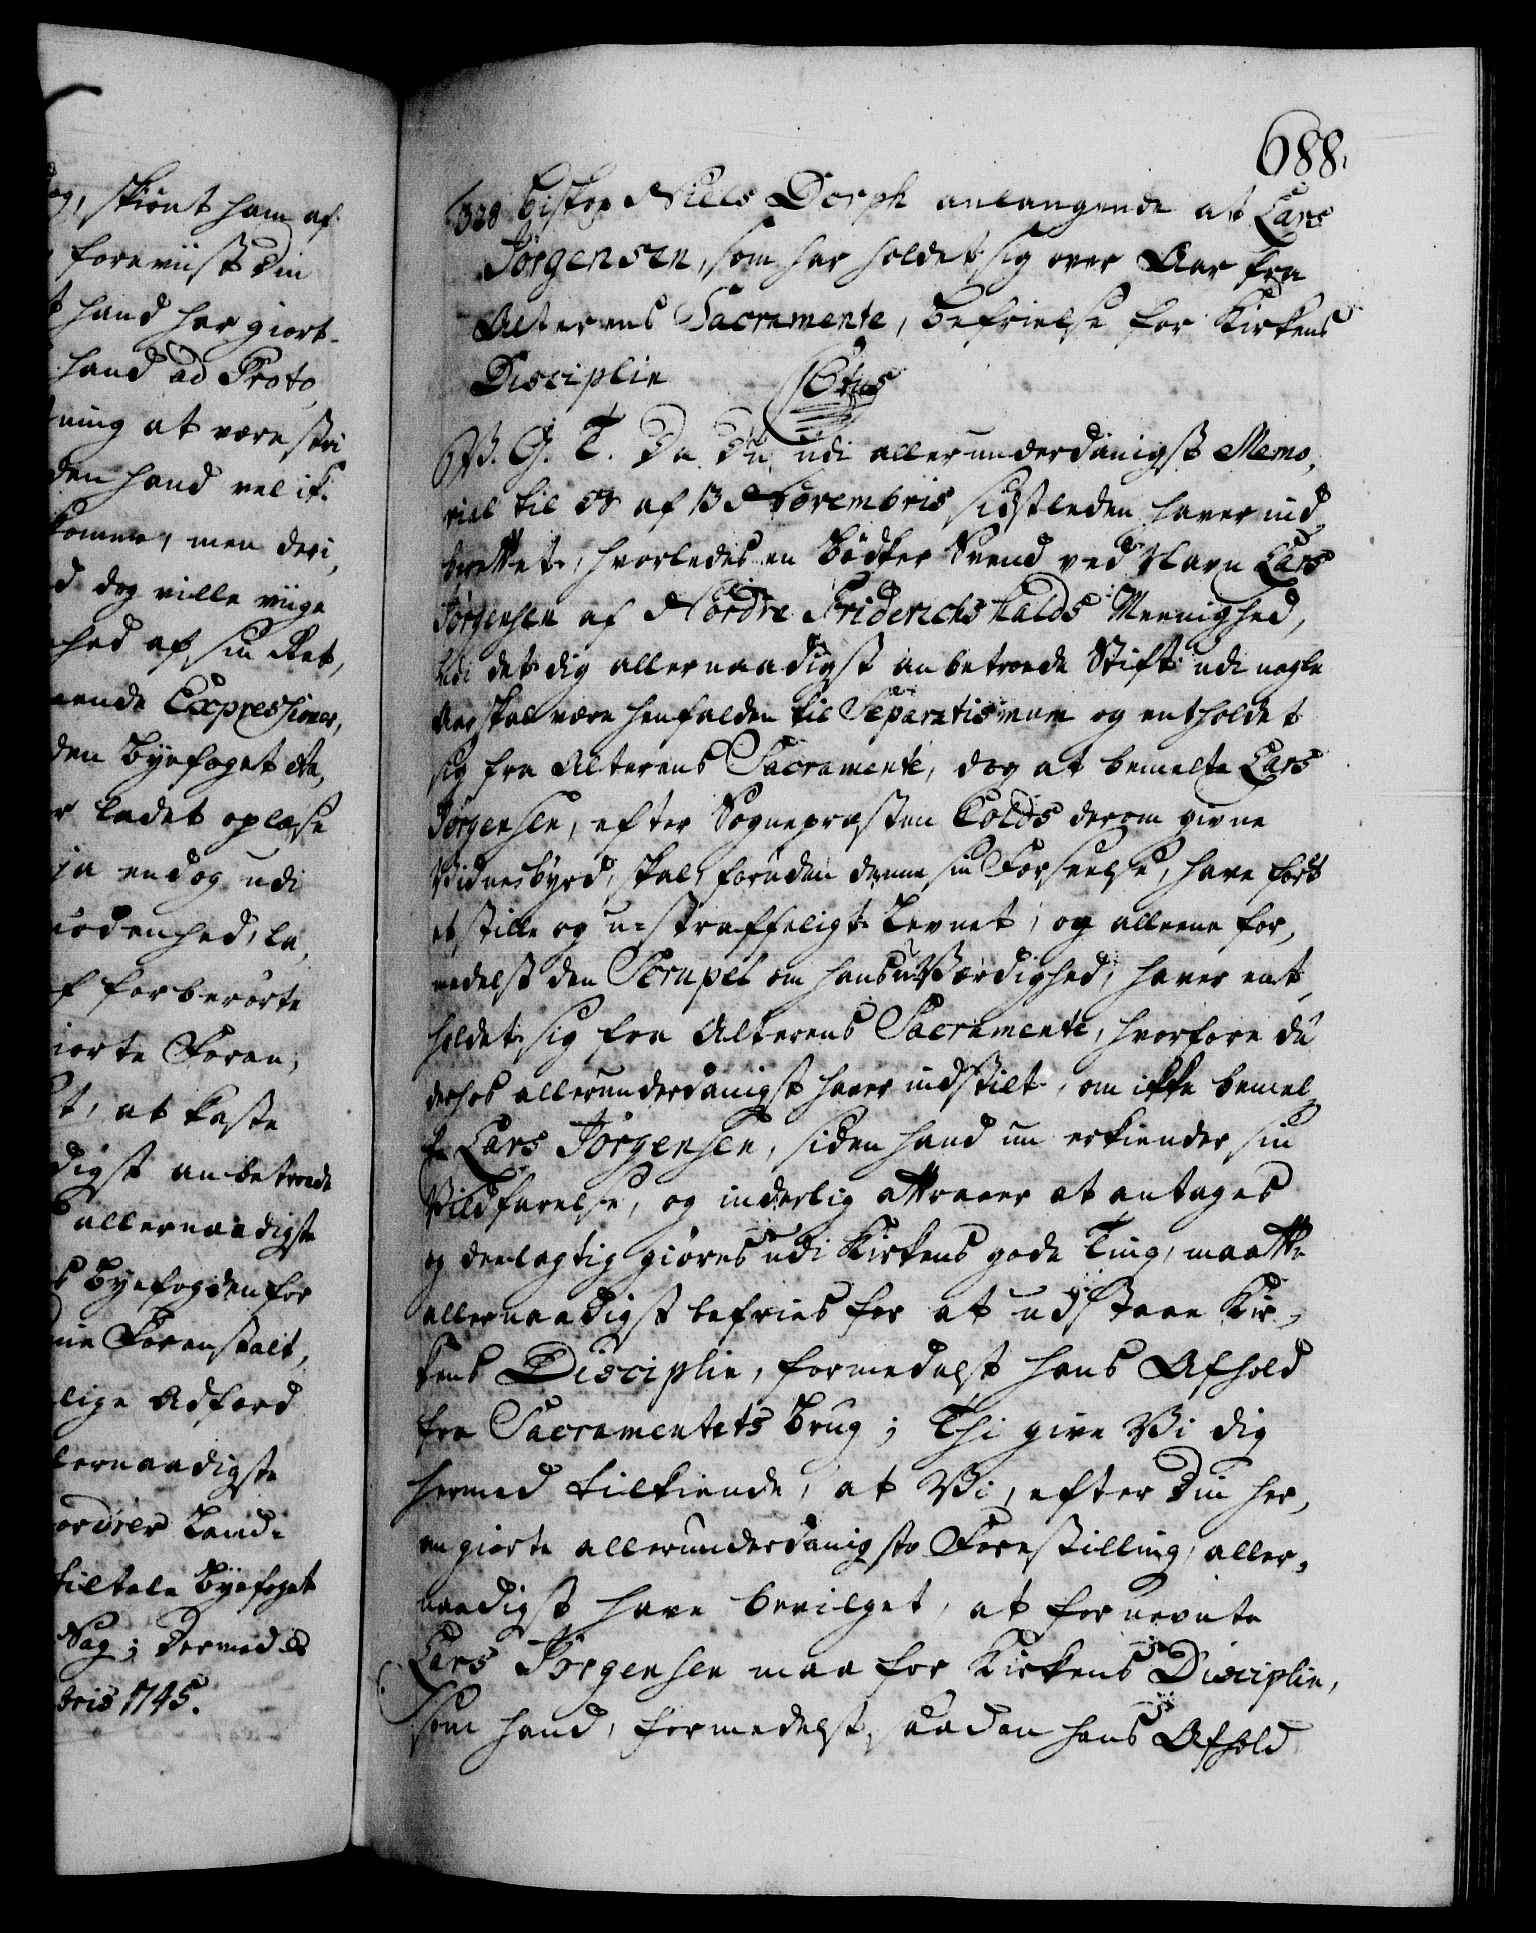 og, skiönt ham af
foreviist Din
t hand har giort
hand ad Proto,
ning at være stri
den hand vel ik.
komme, men deri,
d dog ville viige
hed af sin Ret,
nende Expressioner,
den Byefoget etc,
r ladet oplæse
ja endog udi
uodenhed, la,
f forberörte
iorte Foran,
t, at kaste
digst anbetroede
allernaadigste
s Byefogden for
ne Foranstalt,
lige Adfærd
lernaadigste
ordrer Land-
tiltale Byefoget
Sag; Dermed etc
bris 1745.
688.
328 Biskop Niels Dorph anlangende at Lars
Jörgensen, som har holdet sig over Aar fra
Alterens Sacramente, befrielse for Kirkens
Disciplin
C. 6tus
V. G. T. Da Du udi allerunderdanigst Memo,
rial til Os af 13 Novembris sidstleden haver ind,
berettet, hvorledes en Bödker Svend ved Navn Lars
Jörgensen af Nordre Friderichshalds Meenighed,
udi det dig allernaadigst anbetroede Stift udi nogle
Aar skal være henfalden til Separatismum og entholdet
sig fra Alterens Sacramente, dog at bemelte Lars
Jörgensen, efter Sognepræsten Colds derom givne
Vidnesbyrd, skal foruden denne sin Forseelse, have fört
et stille og u-straffeligt Levnet, og alleene for,
medelst den Scrupel om hans uværdighed, haver ent,
holdet sig fra Alterens Sacramente, hvorfore du
derhos allerunderdanigst haver indstilt, om ikke bemel,
te Lars Jörgensen, siden hand nu erkiender sin
Vildfarelse, og inderlig attraaer at antages
og deelagtig giöres udi Kirkens gode Ting, maatte
allernaadigst befries for at udstaae Kir,
kens Disciplin, formedelst hans Afhold
fra Sacramentets Brug; Thi give Vi dig
hermed tilkiende, at Vi, efter Din her,
om giorte allerunderdanigste Forestilling, aller,
naadigst have bevilget, at fornevnte
Lars Jörgensen maa for Kirkens Disciplin,
som hand, formedelst saadan hans Afhold